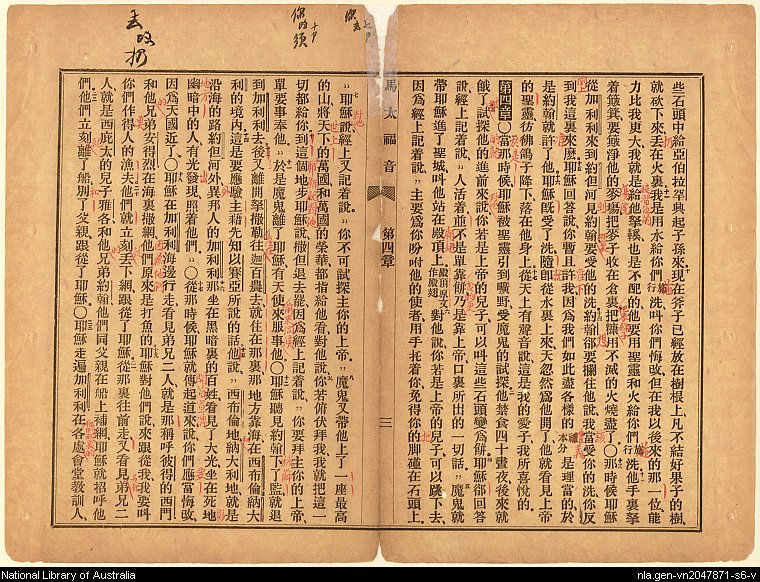 些石頭中給亞伯拉罕興起子孫來現在斧子已經放在樹根上凡不結好果子的樹
就砍下來丟在火裏我是用水給你們施洗叫你們悔改但在我以後來的那一位能
力比我更大我就是給他拏鞵也是不配的他要用聖靈和火給你們施洗他手裏拏
着簸箕要簸淨他的麥場把麥子收在倉裏把糠用不滅的火燒盡了〇那時候耶穌
從加利利來到約但河見約翰要受他的洗約翰卻要攔住他說我當受你的洗你反
到我這裏來麽耶穌回答說你暫且許我因爲我們如此盡各樣的本分是理當的於
是約翰就許了他耶穌旣受了洗隨卽從水裏上來天忽然爲他開了他就看見上帝
的聖靈彷彿鴿子降下落在他身上從天上有聲音說這是我的愛子我所喜悅的
第四章〇當那時候耶穌被聖靈引到曠野受魔鬼的試探他禁食四十晝夜後來就
餓了試探他的進前來說你若是上帝的兒子可以叫這些石頭變爲餅耶穌卻回答
說經上記着說〃人活着不是單靠餅乃是靠上帝口裏所出的一切話〃魔鬼就
帶耶穌進了聖城叫他站在殿頂上殿頂原文作殿翅對他說你若是上帝的兒子可以跳下去
因爲經上記着說〃主要爲你吩咐他的使者用手托着你免得你的脚碰在石頭上
馬太福音 第四章 三
〃耶穌說經上又記着說〃你不可試探主你的上帝〃魔鬼又帶他上了一座最高
的山將天下的萬國和萬國的榮華都指給他看對他說你若俯伏拜我我就把這一
切都給你到這個地步耶穌說撒但退去罷因爲經上記着說〃你要拜主你的上帝
單要事奉他〃於是魔鬼離了耶穌有天使來服事他〇耶穌聽見約翰下了監就退
到加利利去後又離開拏撒勒往迦百農去就住在那裏那地方靠海在西布倫納大
利的境內這是要應驗主藉先知以賽亞所說的話他說〃西布倫地納大利地就是
沿海的路約但河外異邦人的加利利那坐在黑暗裏的百姓看見了大光坐在死地
幽暗中的人有光發現照着他們〃〇從那時候耶穌就傳起道來說你們應當悔改
因爲天國近了〇耶穌在加利利海邊行走看見弟兄二人就是那稱呼彼得的西門
和他兄弟安得烈在海裏撒網他們原來是打魚的耶穌對他們說來跟從我我要叫
你們作得人的漁夫他們就立刻丟下網跟從了耶穌從那裏往前走又看見弟兄二
人就是西庇太的兒子雅各和他兄弟約翰他們同父親在船上補網耶穌就招呼他
們他們立刻離了船別了父親跟從了耶穌〇耶穌走遍加利利在各處會堂教訓人
National Library of Australia
nla.gen-vn2047871-s6-v